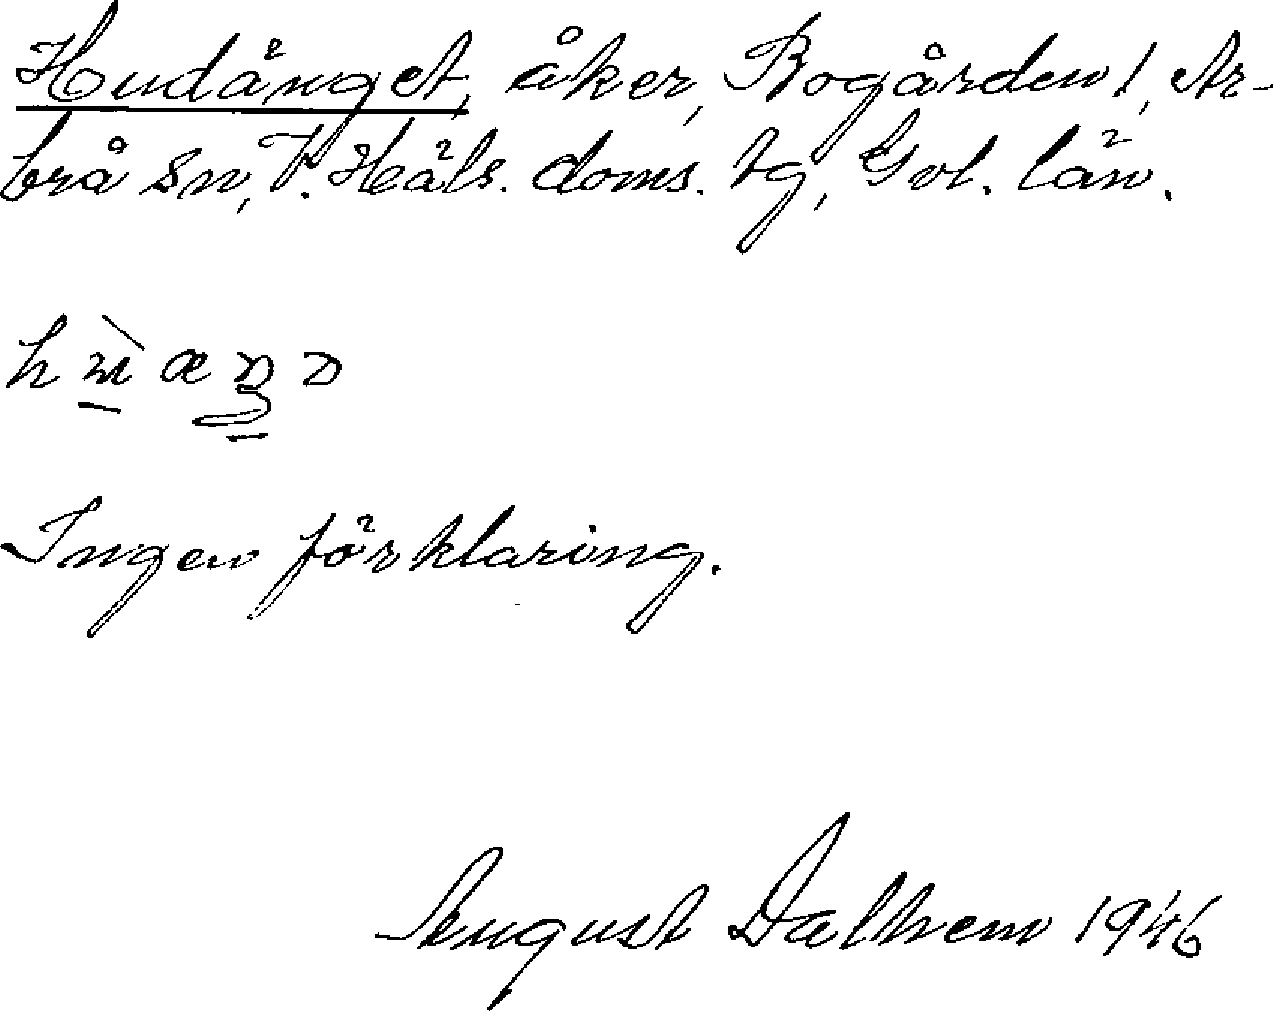 Hudänget, åker, Bogården 1, Ar-
brå sn, V. Häls. doms. tg, Gvl. län.
Ingen förklaring.
August Dalhem 1946